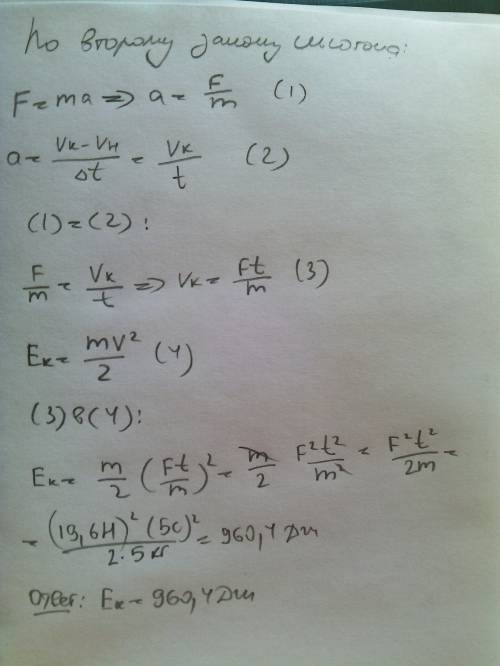 По второму закону Ньютона:
F = ma => a = F/m (1)
a = (Vк - Vн)/Δt = Vк/t (2)
(1) = (2) :
F/m = Vк/t => Vк = Ft/m (3)
Eк = mV²/2 (4)
(3) в (4) :
Eк = m/2 (Ft/m)² = m/2 F²t²/m² = F²t²/2m =
= (19,6Н)² (5с)²/2·5 кг = 960,4 Дж
Ответ: Eк = 960,4 Дж